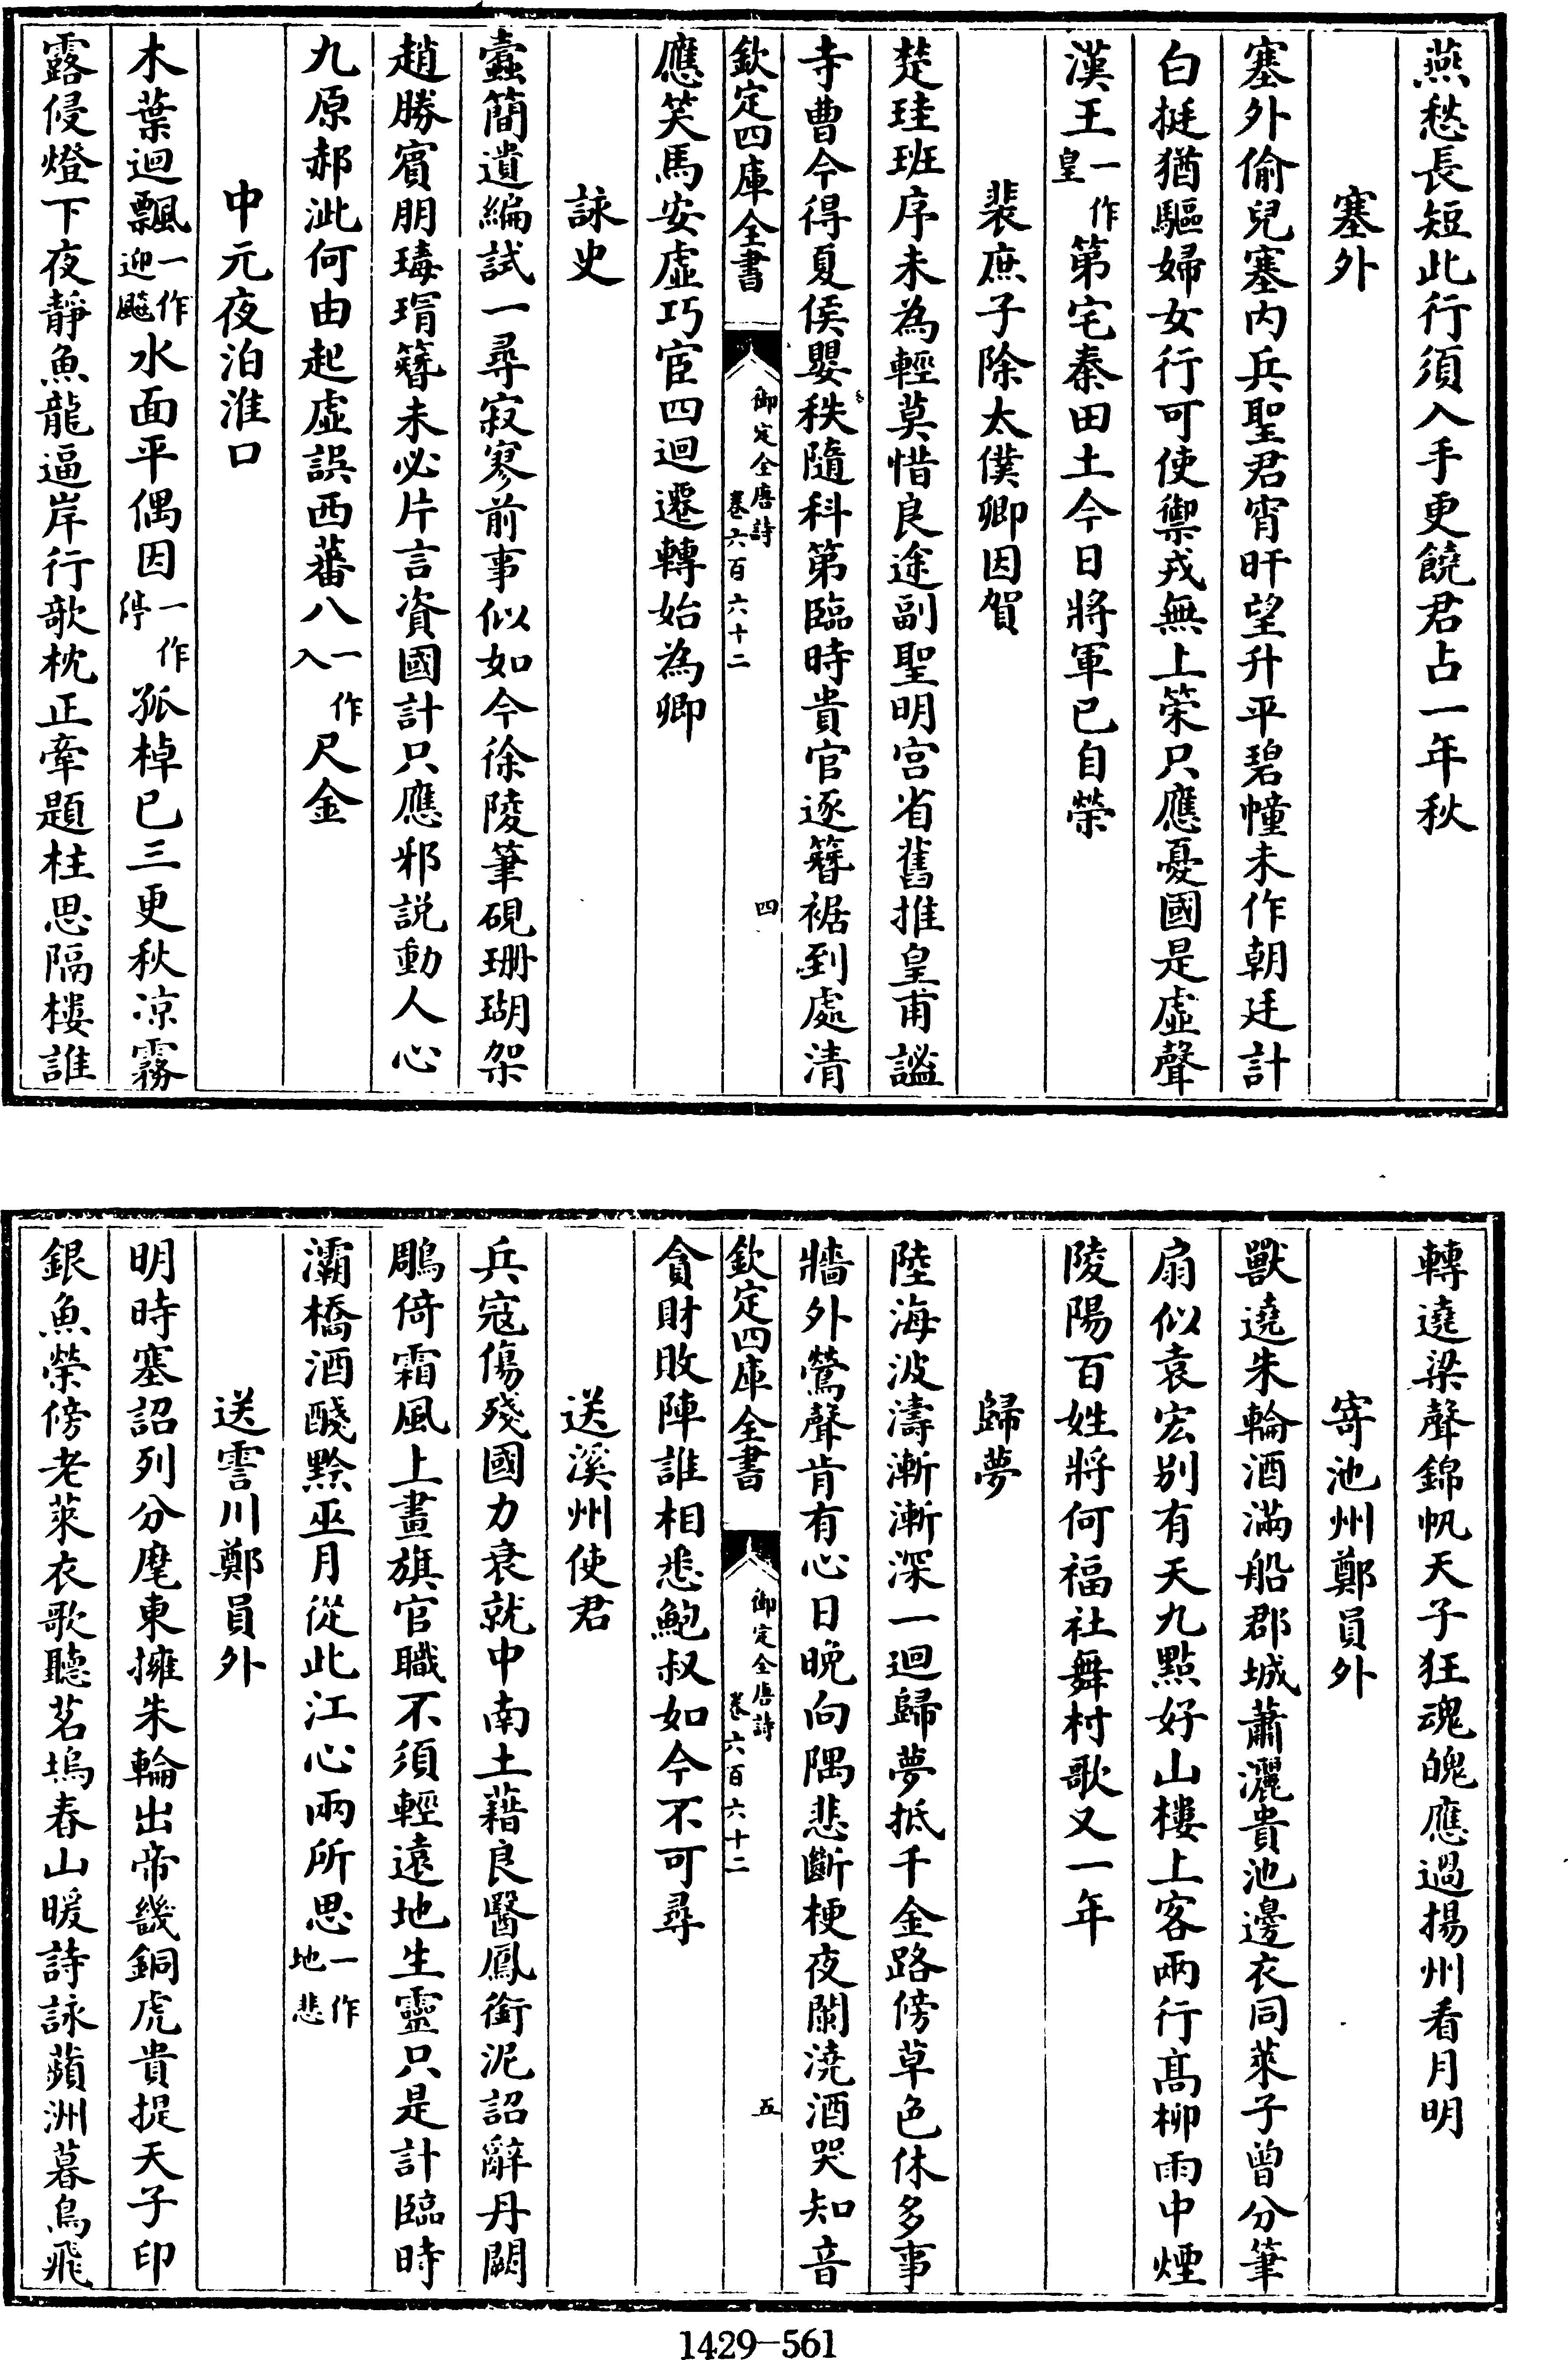 燕愁長短此行須入手更饒君占一年秋
塞外
塞外偷兒塞內兵聖君宵旰望升平碧幢未作朝廷計
白梃猶驅婦女行可使禦戎無上策只應憂國是虛聲
漢王一作皇第宅秦田土今日將軍已自榮
裴庶子除太僕卿因賀
楚珪班序未為輕莫惜良途副聖明宮省舊推皇甫謐
寺曹今得夏侯嬰秩隨科第臨時貴官逐簪裾到處清
欽定四庫全書 御定全唐詩 卷六百六十二 四
應笑馬安虛巧宦四迴遷轉始為卿
詠史
蠹簡遺編試一尋寂寥前事似如今徐陵筆硯珊瑚架
趙勝賓朋瑇瑁簪未必片言資國計只應邪説動人心
九原郝泚何由起虛誤西蕃八一作入尺金
中元夜泊淮口
木葉迴飄一作迎飈水面平偶因一作停孤棹已三更秋涼霧
露侵燈下夜靜魚龍逼岸行欹枕正牽題柱思隔樓誰
轉遶梁聲錦帆天子狂魂魄應過揚州看月明
寄池州鄭員外
獸遶朱輪酒滿船郡城蕭灑貴池邊衣同萊子曾分筆
扇似袁宏别有天九點好山樓上客兩行高柳雨中煙
陵陽百姓將何福社舞村歌又一年
歸夢
陸海波濤漸漸深一迴歸夢抵千金路傍草色休多事
牆外鶯聲肯有心日晚向隅悲斷梗夜闌澆酒哭知音
欽定四庫全書 御定全唐詩 卷六百六十二 五
貪財敗陣誰相悉鮑叔如今不可尋
送溪州使君
兵寇傷殘國力衰就中南土藉良醫鳳銜泥詔辭丹闕
鵰倚霜風上畫旗官職不須輕遠地生靈只是計臨時
灞橋酒醆黔巫月從此江心兩所思一作地悲
送霅川鄭員外
明時塞詔列分麾東擁朱輪出帝畿銅虎貴提天子印
銀魚榮傍老萊衣歌聽茗塢春山暖詩詠蘋洲暮鳥飛
1429-561